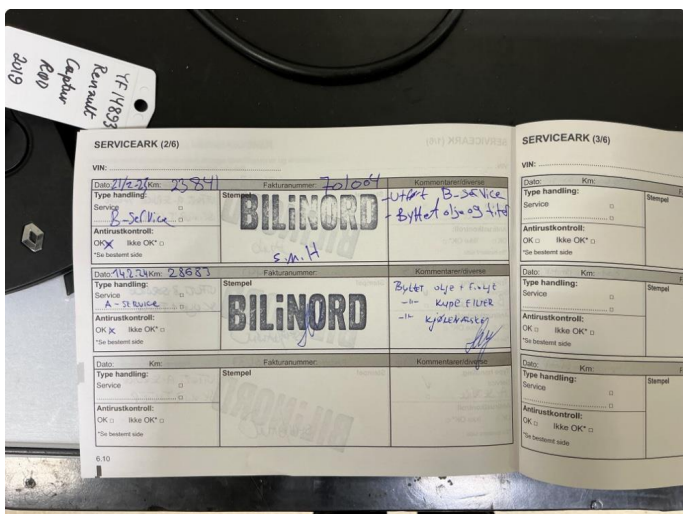 YF14893
Renault
Captur
RØD
2019
SERVICEARK (2/6)
VIN:
Dato: 21/2-23 Km: 23841 Fakturanummer: 701004 Kommentarer/diverse
Type handling:
Service
B-service
Antirustkontroll:
OK Ikke OK*
*Se bestemt side
Stempel
BILiNORD
S.M.H
-Utført B-service
-Byttet olje og filter
Dato: 14.2.24 Km: 28683 Fakturanummer: Kommentarer/diverse
Type handling:
Service
A-SERVICE
Antirustkontroll:
OK Ikke OK*
*Se bestemt side
Stempel
BILiNORD
Byttet olje + Filter
-11- KUPE FILTER
-11- KJØLEVÆSKE
Dato: Km: Fakturanummer: Kommentarer/diverse
Type handling:
Service
Antirustkontroll:
OK Ikke OK*
*Se bestemt side
Stempel
6.10
SERVICEARK (3/6)
VIN:
Dato: Km:
Type handling:
Service
Antirustkontroll:
OK Ikke OK*
*Se bestemt side
Stempel
Dato: Km:
Type handling:
Service
Antirustkontroll:
OK Ikke OK*
*Se bestemt side
Stempel
Dato: Km:
Type handling:
Service
Antirustkontroll:
OK Ikke OK*
*Se bestemt side
Stempel